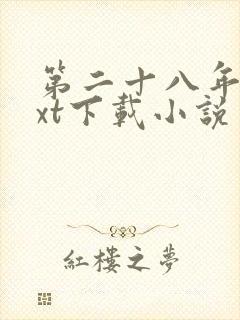 第二十八年
xt下載小說
紅樓之夢